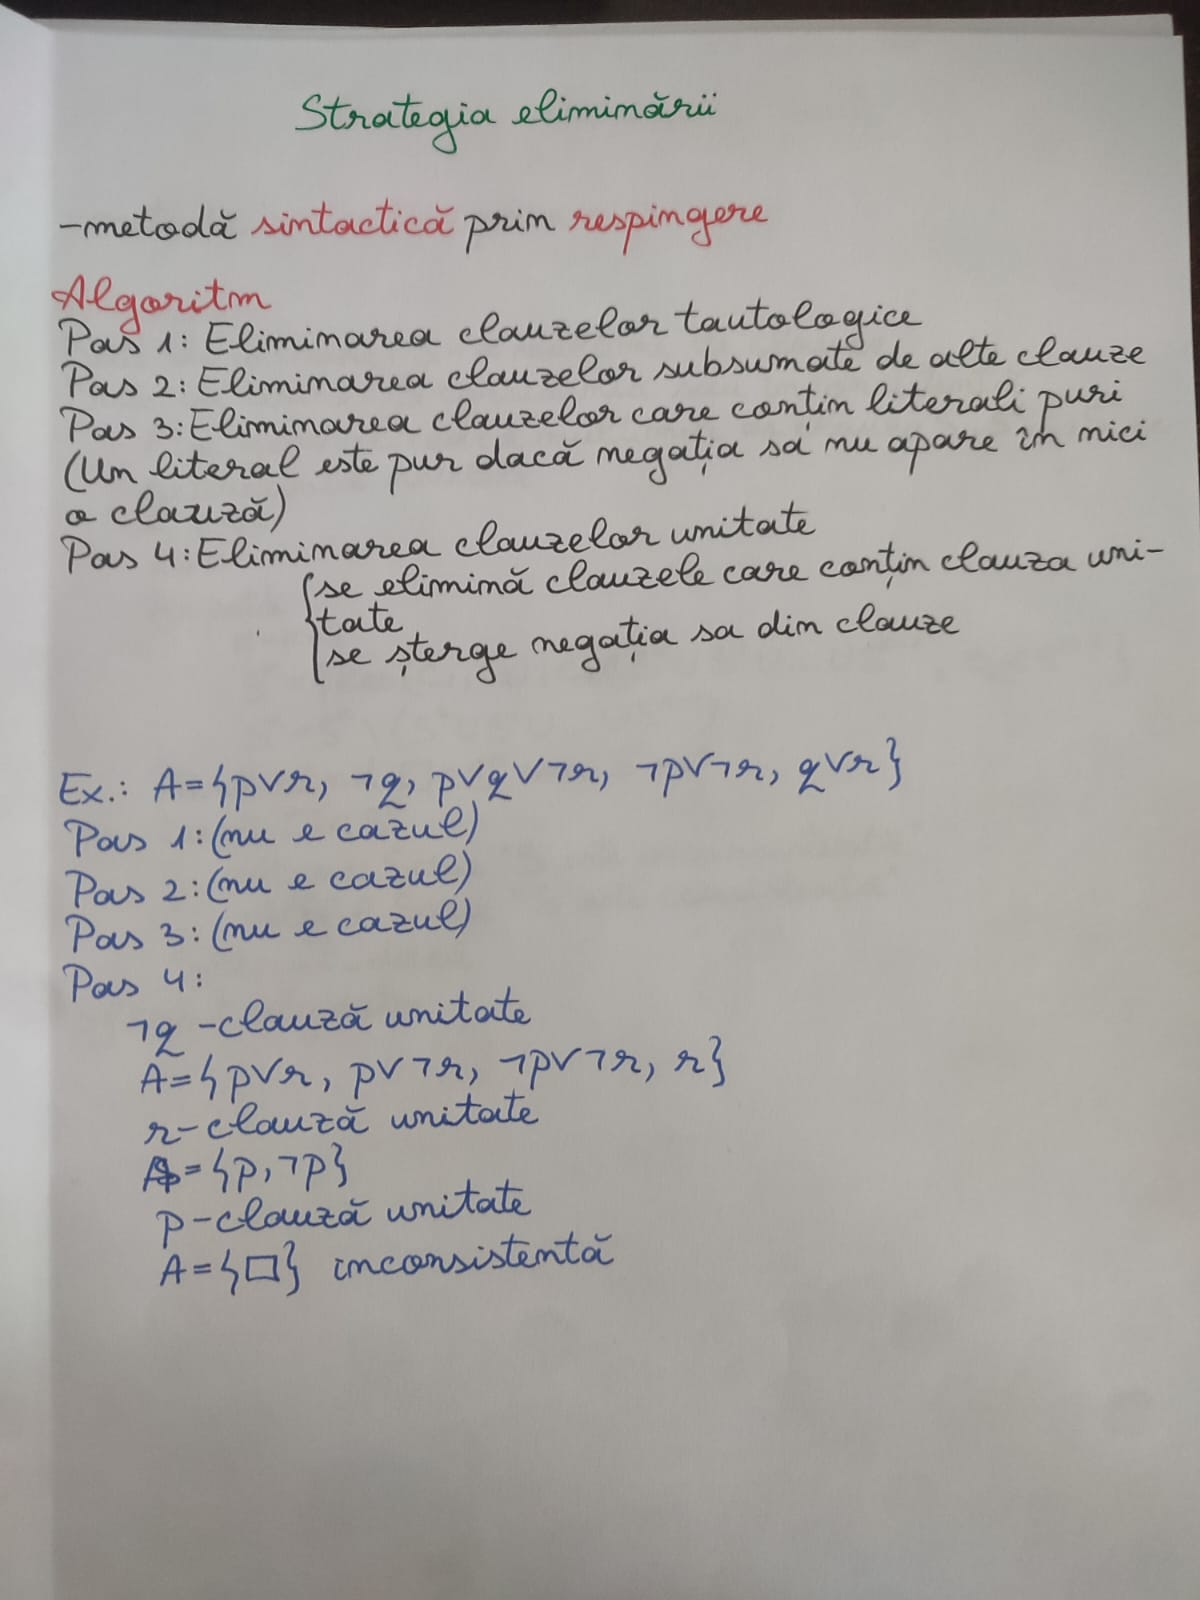 Strategia eliminării
-metodă sintactică prin respingere
Algoritm
Pas 1: Eliminarea clauzelor tautologice
Pas 2: Eliminarea clauzelor subsumate de alte clauze
Pas 3: Eliminarea clauzelor care conțin literali puri
(Un literal este pur dacă negația sa nu apare în nici
o clauză)
Pas 4: Eliminarea clauzelor unitate
se elimină clauzele care conțin clauza uni-
tate
se șterge negația sa din clauze
Ex.: A={p∨r, ¬q, p∨q∨¬r, ¬p∨¬r, q∨r}
Pas 1: (nu e cazul)
Pas 2: (nu e cazul)
Pas 3: (nu e cazul)
Pas 4:
¬q -clauză unitate
A={p∨r, p∨¬r, ¬p∨¬r, r}
r-clauză unitate
A={p, ¬p}
p-clauză unitate
A={□} inconsistentă